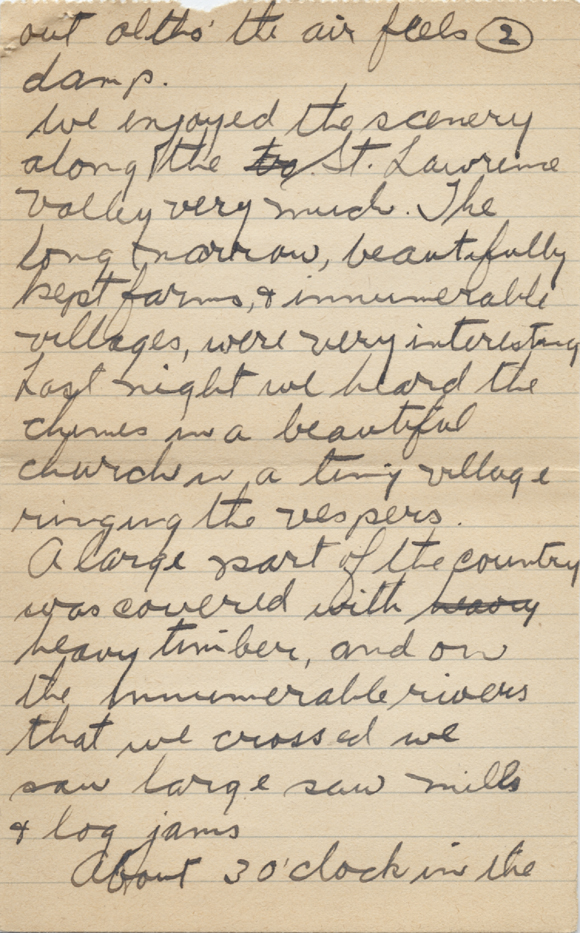 out altho' the air feels 2
damp.
We enjoyed the scenery
along the St. Lawrence
Valley very much. The
long narrow, beautifully
kept farms, & innumerable
villages, were very interesting
Last night we heard the
chimes in a beautiful
church in a tiny village
ringing the vespers.
A large part of the country
was covered with heavy
heavy timber, and on
the innumerable rivers
that we crossed we
saw large saw mills
& log jams
About 3 o'clock in the